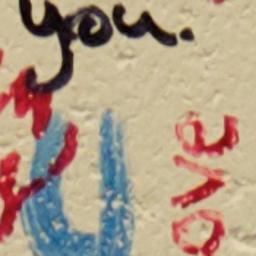 you.
U
ove